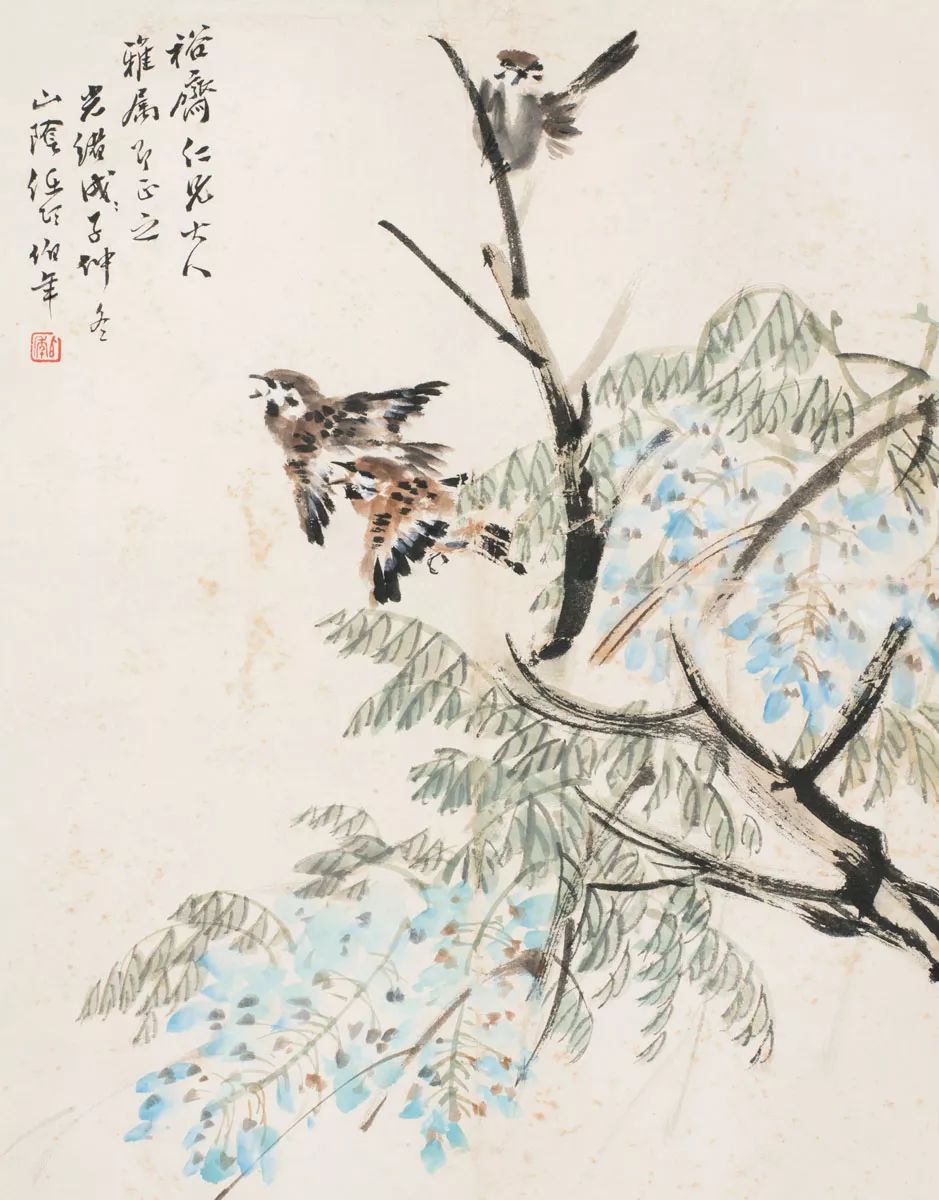 裕齋仁兄大人
雅属即正之
光緒戊子仲冬
山陰任頤伯年
伯年